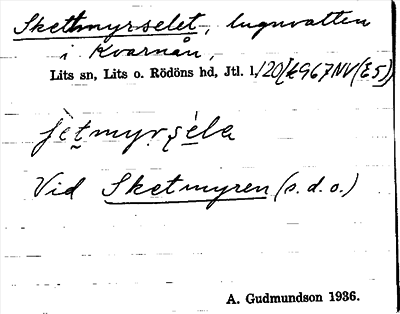 Sketmyrselet, lugnvatten
i Kvarnån,
Lits sn, Lits o. Rödöns hd, Jtl. l.
Vid Sketmyren (s. d. o.)
A. Gudmundson 1936.